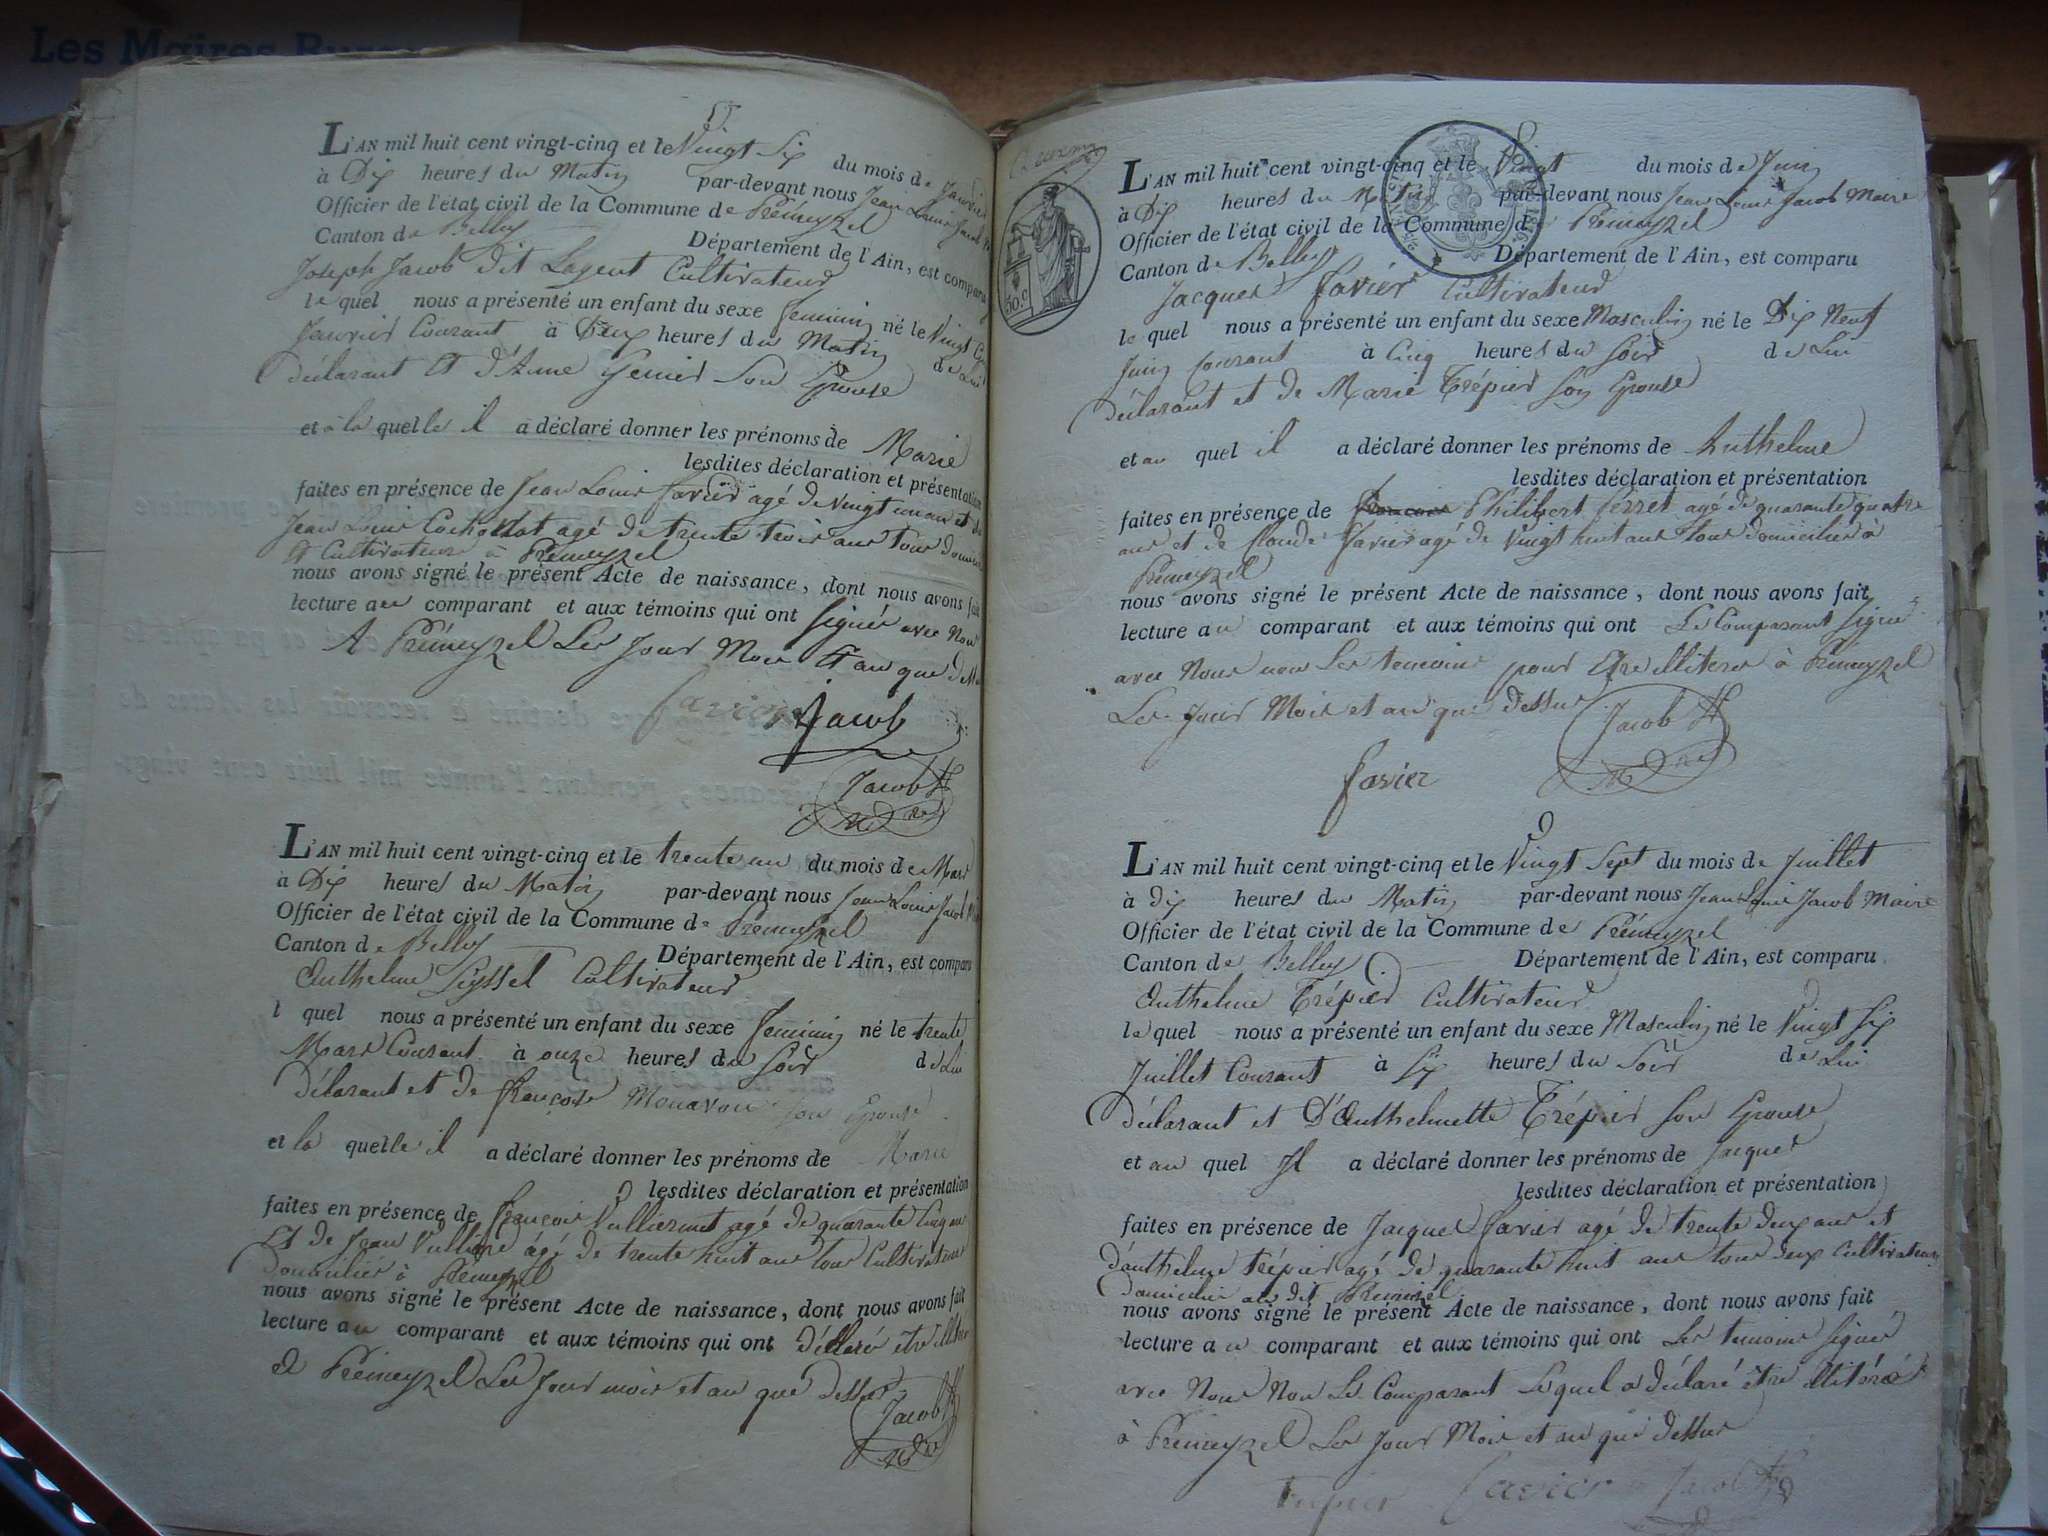 Les Maires
L'AN mil huit cent vingt-cinq et le Vingt Six du mois de Janvier
à Dix heures du Matin par-devant nous Jean Louis Jacob
Officier de l'état civil de la Commune de Prémeyzel
Canton de Belley Département de l'Ain, est comparu
Joseph Jacob dit Lagent Cultivateur
le quel nous a présenté un enfant du sexe feminin né le Vingt
Janvier Courant à Deux heures du Matin de Lui
déclarant et d'Anne Genier Son Epouse
et à la quelle il a déclaré donner les prénoms de Marie
lesdites déclaration et présentation
faites en présence de Jean Louis favier agé de vingt un an et de
Jean Louis agé de trente trois ans Tous
et Cultivateurs à Prémeyzel
nous avons signé le présent Acte de naissance, dont nous avons fait
lecture au comparant et aux témoins qui ont signés avec Nous
A Prémeyzel Les Jour Mois et an que dessus
favier Jacob
Jacob
L'AN mil huit cent vingt-cinq et le trente un du mois de Mars
à Dix heures du Matin par-devant nous Jean Louis Jacob
Officier de l'état civil de la Commune de Prémeyzel
Canton de Belley Département de l'Ain, est comparu
Anthelme Seyssel Cultivateur
l quel nous a présenté un enfant du sexe feminin né le trente
Mars Courant à onze heures du Soir de Lui
déclarant et de françoise Monavon son Epouse
et la quelle il a déclaré donner les prénoms de Marie
lesdites déclaration et présentation
faites en présence de françois Vulliermet agé de quarante Cinq ans
et de Jean agé de trente huit ans tous Cultivateurs
Domicilier à Prémeyzel
nous avons signé le présent Acte de naissance, dont nous avons fait
lecture au comparant et aux témoins qui ont déclaré être
à Prémeyzel Les Jour mois et an que dessus
Jacob
50.c
L'AN mil huit cent vingt-cinq et le Vingt du mois de Juin
à Dix heures du Matin par-devant nous Jean Louis Jacob Maire
Officier de l'état civil de la Commune de Prémeyzel
Canton de Belley Département de l'Ain, est comparu
Jacques favier Cultivateur
le quel nous a présenté un enfant du sexe Masculin né le Dix Neuf
Juin courant à Cinq heures du Soir de Lui
déclarant et de Marie Trépier Son Epouse
et au quel il a déclaré donner les prénoms de Anthelme
lesdites déclaration et présentation
faites en présence de Philibert Perret agé de quarante quatre
ans et de Claude favier agé de Vingt huit ans tous domicilier à
Prémeyzel
nous avons signé le présent Acte de naissance, dont nous avons fait
lecture au comparant et aux témoins qui ont Le Comparant signé
avec Nous non Les temoins pour Etre illiteres à Prémeyzel
Les Jour Mois et an que dessus
Jacob
favier
L'AN mil huit cent vingt-cinq et le Vingt Sept du mois de Juillet
à dix heures du Matin par-devant nous Jean Louis Jacob Maire
Officier de l'état civil de la Commune de Prémeyzel
Canton de Belley Département de l'Ain, est comparu
Anthelme Trépier Cultivateur
le quel nous a présenté un enfant du sexe Masculin né le Vingt Six
Juillet Courant à Six heures du Soir de Lui
déclarant et D'Anthelmette Trépier Son Epouse
et au quel Il a déclaré donner les prénoms de Jacques
lesdites déclaration et présentation
faites en présence de Jacques favier agé de trente deux ans et
d'anthelme trépier agé de quarante huit ans tous deux Cultivateurs
Domicilier au dit Prémeyzel
nous avons signé le présent Acte de naissance, dont nous avons fait
lecture au comparant et aux témoins qui ont Les temoins signés
avec Nous Non Le Comparant Lequel a déclaré être illitéré
à Prémeyzel Les Jour Mois et an que dessus
Trepier favier Jacob